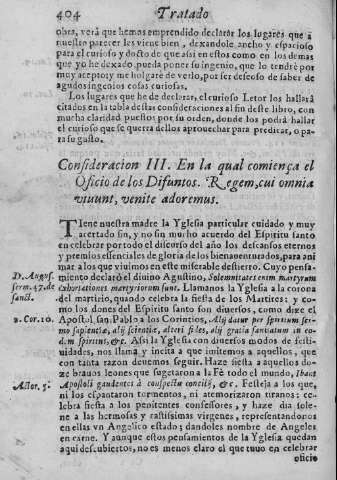 404 Tratado
obra, verà que hemos emprendido declarar los lugares que à
nuestro parecer les viene bien, dexandole ancho y espacioso
para el curioso y de docto que assi en estos como en los demas
que yo he dexado pueda poner su ingenio, que lo tendrè por
muy acepto; y me holgarè de verlo, por ser deseoso de saber de
agudos ingenios cosas curiosas.
Los lugares que he de declarar, el curioso Letor los hallarà
citados en la tabla destas consideraciones al fin deste libro, con
mucha claridad puestos por su orden, donde los podrà hallar
el curioso que se querra dellos aprouechar para predicar, o pa
ra su gusto.
Consideracion III. En la qual comiença el
Oficio de los Difuntos. Regem, cui omnia
viuunt, venite adoremus.
TIene nuestra madre la Yglesia particular cuidado y muy
acertado sin, y no sin mucho acuerdo del Espiritu santo
en celebrar por todo el discurso del año los descansos eternos
y premios essenciales de gloria de los bienauenturados, para ani
mar a los que viuimos en este miserable destierro. Cuyo pensa-
D. Augus. miento declarò el diuino Agustino, Solemnitates enim martyrum
serm. 47. de exhortationes martyriorum sunt. Llamanos la Yglesia a la corona
sanct. del martirio, quando celebra la fiesta de los Martires: y co-
mo los dones del Espiritu santo son diuersos, como dize el
2. Cor. 10. Apostol san Pablo a los Corintios, Alij datur per spiritum ser-
mo sapientiæ, alij scientiæ, alteri fides, alij gratia sanitatum in eo-
dem spiritu, &c. Assi la Yglesia con diuersos modos de festi-
uidades, nos llama y incita a que imitemos a aquellos, que
con tanta razon deuemos seguir. Haze fiesta a aquellos do-
ze brauos leones que sugetaron a la Fè todo el mundo, Ibant
Actor. 5. Apostoli gaudentes à conspectu concilij, &c. Festeja a los que,
ni los espantaron tormentos, ni atemorizaron tiranos: ce-
lebra fiesta a los penitentes confessores, y haze dia solе-
ne a las hermosas y castissimas virgines, representandonos
en ellas vn Angelico estado; dandoles nombre de Angeles
en carne. Y aunque estos pensamientos de la Yglesia quedan
aqui descubiertos, no es menos claro el que tuuo en celebrar
oficio